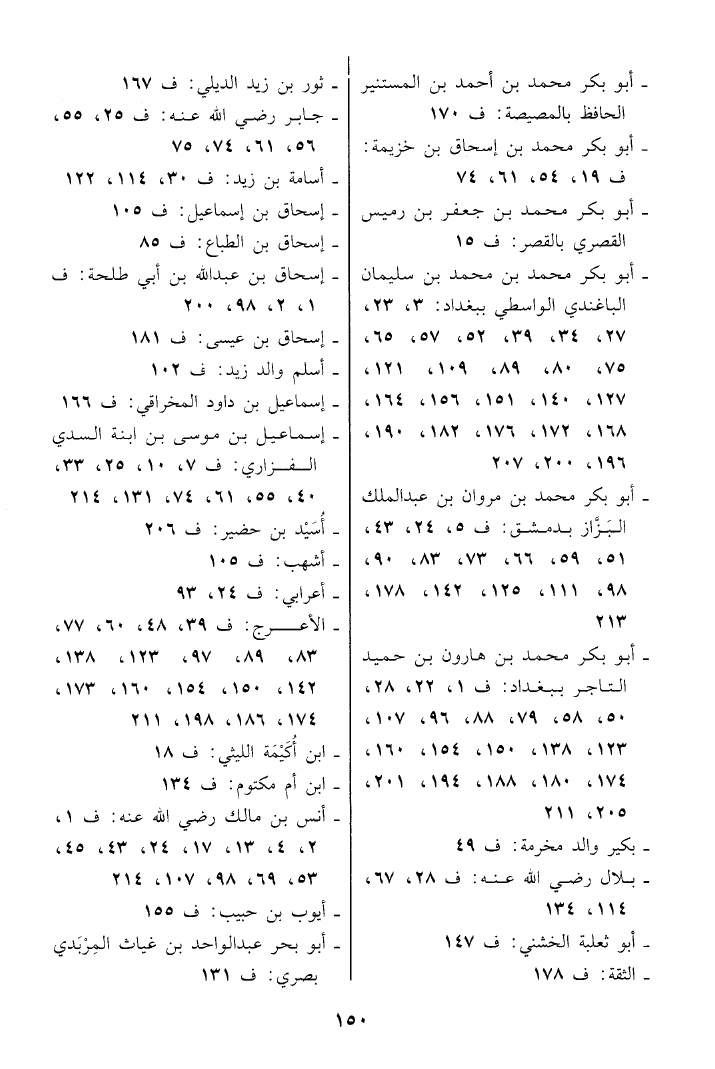 - أبو بكر محمد بن أحمد بن المستنير
الحافظ بالمصيصة: ف ١٧٠
- أبو بكر محمد بن إسحاق بن خزيمة:
ف ١٩، ٥٤، ٦١، ٧٤
- أبو بكر محمد بن جعفر بن رميس
القصري بالقصر: ف ١٥
- أبو بكر محمد بن محمد بن سليمان
الباغندي الواسطي ببغداد: ٣، ٢٣،
٢٧، ٣٤، ٣٩، ٥٢، ٥٧، ٦٥،
٧٥، ٨٠، ٨٩، ١٠٩، ١٢١،
١٢٧، ١٤٠، ١٥١، ١٥٦، ١٦٤،
١٦٨، ١٧٢، ١٧٦، ١٨٢، ١٩٠،
١٩٦، ٢٠٠، ٢٠٧
- أبو بكر محمد بن مروان بن عبدالملك
البَزَّاز بدمشق: ف ٥، ٢٤، ٤٣،
٥١، ٥٩، ٦٦، ٧٣، ٨٣، ٩٠،
٩٨، ١١١، ١٢٥، ١٤٢، ١٧٨،
٢١٣
- أبو بكر محمد بن هارون بن حميد
التاجر ببغداد: ف ١، ٢٢، ٢٨،
٥٠، ٥٨، ٧٩، ٨٨، ٩٦، ١٠٧،
١٢٣، ١٣٨، ١٥٠، ١٥٤، ١٦٠،
١٧٤، ١٨٠، ١٨٨، ١٩٤، ٢٠١،
٢٠٥، ٢١١
- بكير والد مخرمة: ف ٤٩
- بلال رضي الله عنه: ف ٢٨، ٦٧،
١١٤، ١٣٤
- أبو ثعلبة الخشني: ف ١٤٧
- الثقة: ف ١٧٨
- ثور بن زيد الديلي: ف ١٦٧
- جابر رضي الله عنه: ف ٢٥، ٥٥،
٥٦، ٦١، ٧٤، ٧٥
- أسامة بن زيد: ف ٣٠، ١١٤، ١٢٢
- إسحاق بن إسماعيل: ف ١٠٥
- إسحاق بن الطباع: ف ٨٥
- إسحاق بن عبدالله بن أبي طلحة: ف
١، ٢، ٩٨، ٢٠٠
- إسحاق بن عيسى: ف ١٨١
- أسلم والد زيد: ف ١٠٢
- إسماعيل بن داود المخراقي: ف ١٦٦
- إسماعيل بن موسى بن ابنة السدي
الفزاري: ف ٧، ١٠، ٢٥، ٣٣،
٤٠، ٥٥، ٦١، ٧٤، ١٣١، ٢١٤
- أُسَيْد بن حضير: ف ٢٠٦
- أشهب: ف ١٠٥
- أعرابي: ف ٢٤، ٩٣
- الأعرج: ف ٣٩، ٤٨، ٦٠، ٧٧،
٨٣، ٨٩، ٩٧، ١٢٣، ١٣٨،
١٤٢، ١٥٠، ١٥٤، ١٦٠، ١٧٣،
١٧٤، ١٨٦، ١٩٨، ٢١١
- ابن أُكَيْمَة الليثي: ف ١٨
- ابن أم مكتوم: ف ١٣٤
- أنس بن مالك رضي الله عنه: ف ١،
٢، ٤، ١٣، ١٧، ٢٤، ٤٣، ٤٥،
٥٣، ٦٩، ٩٨، ١٠٧، ٢١٤
- أيوب بن حبيب: ف ١٥٥
- أبو بحر عبدالواحد بن غياث المِرْبَدي
بصري: ف ١٣١
١٥٠